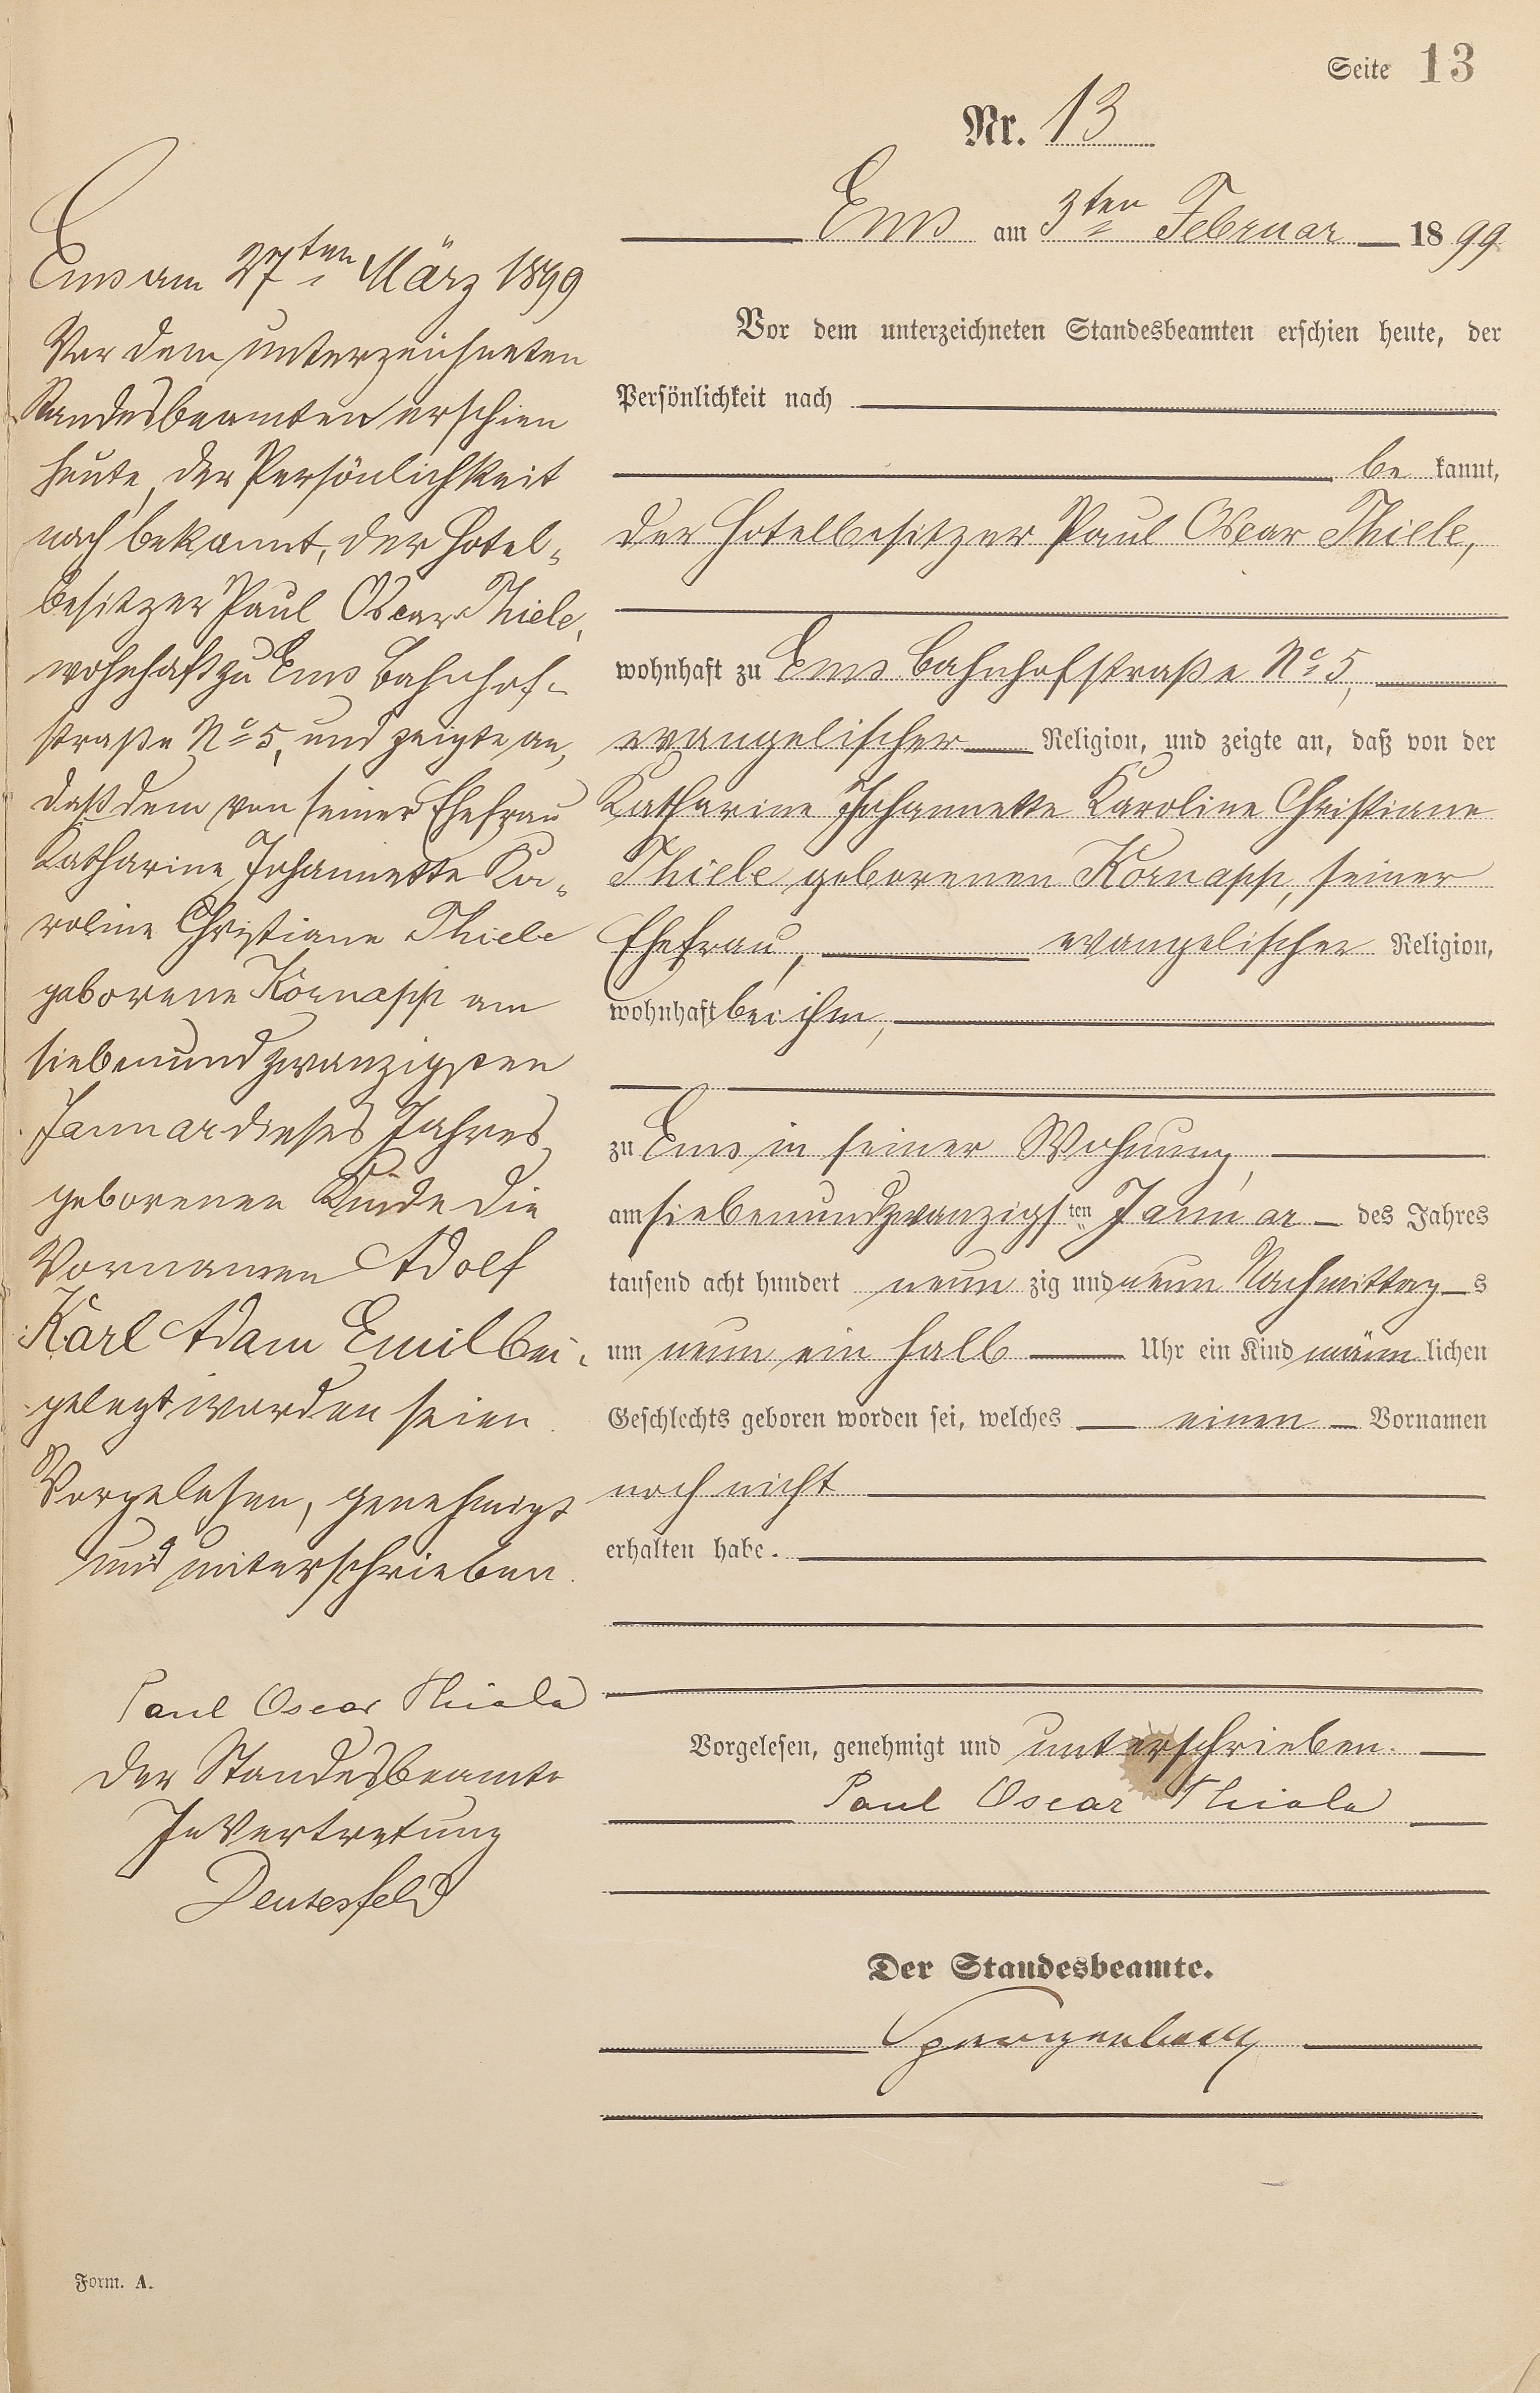 Seite 13
Nr. 13
Ems am 3ten Februar 1899
Vor dem unterzeichneten Standesbeamten erschien heute, der
Persönlichkeit nach
be kannt,
der Hotelbesitzer Paul Oscar Thiele,
wohnhaft zu Ems Bahnhofstraße No 5,
evangelischer Religion, und zeigte an, daß von der
Katharine Johannette Karoline Christiane
Thiele geborenen Kornapp, seiner
Ehefrau, evangelischer Religion,
wohnhaft bei ihm,
zu Ems in seiner Wohnung,
am siebenundzwanzigsten Januar des Jahres
tausend acht hundert neun zig und neun Nachmittags
um neun ein halb Uhr ein Kind männlichen
Geschlechts geboren worden sei, welches einen Vornamen
noch nicht
erhalten habe.
Vorgelesen, genehmigt und unterschrieben.
Paul Oscar Thiele
Der Standesbeamte.
Ems am 27ten März 1899
Vor dem unterzeichneten
Standesbeamten erschien
heute, der Persönlichkeit
nach bekannt, der Hotel-
besitzer Paul Oscar Thiele,
wohnhaft zu Ems Bahnhof-
straße No 5, und zeigte an,
daß dem von seiner Ehefrau
Katharine Johannette Ka-
roline Christiane Thiele
geborene Kornapp am
siebenundzwanzigsten
Januar dieses Jahres
geborenen Kinde die
Vornamen Adolf
Karl Adam Emil bei-
gelegt worden seien
Vorgelesen, genehmigt
und unterschrieben.
Paul Oscar Thiele
Der Standesbeamte
In Vertretung
Deutesfeld
Form. A.